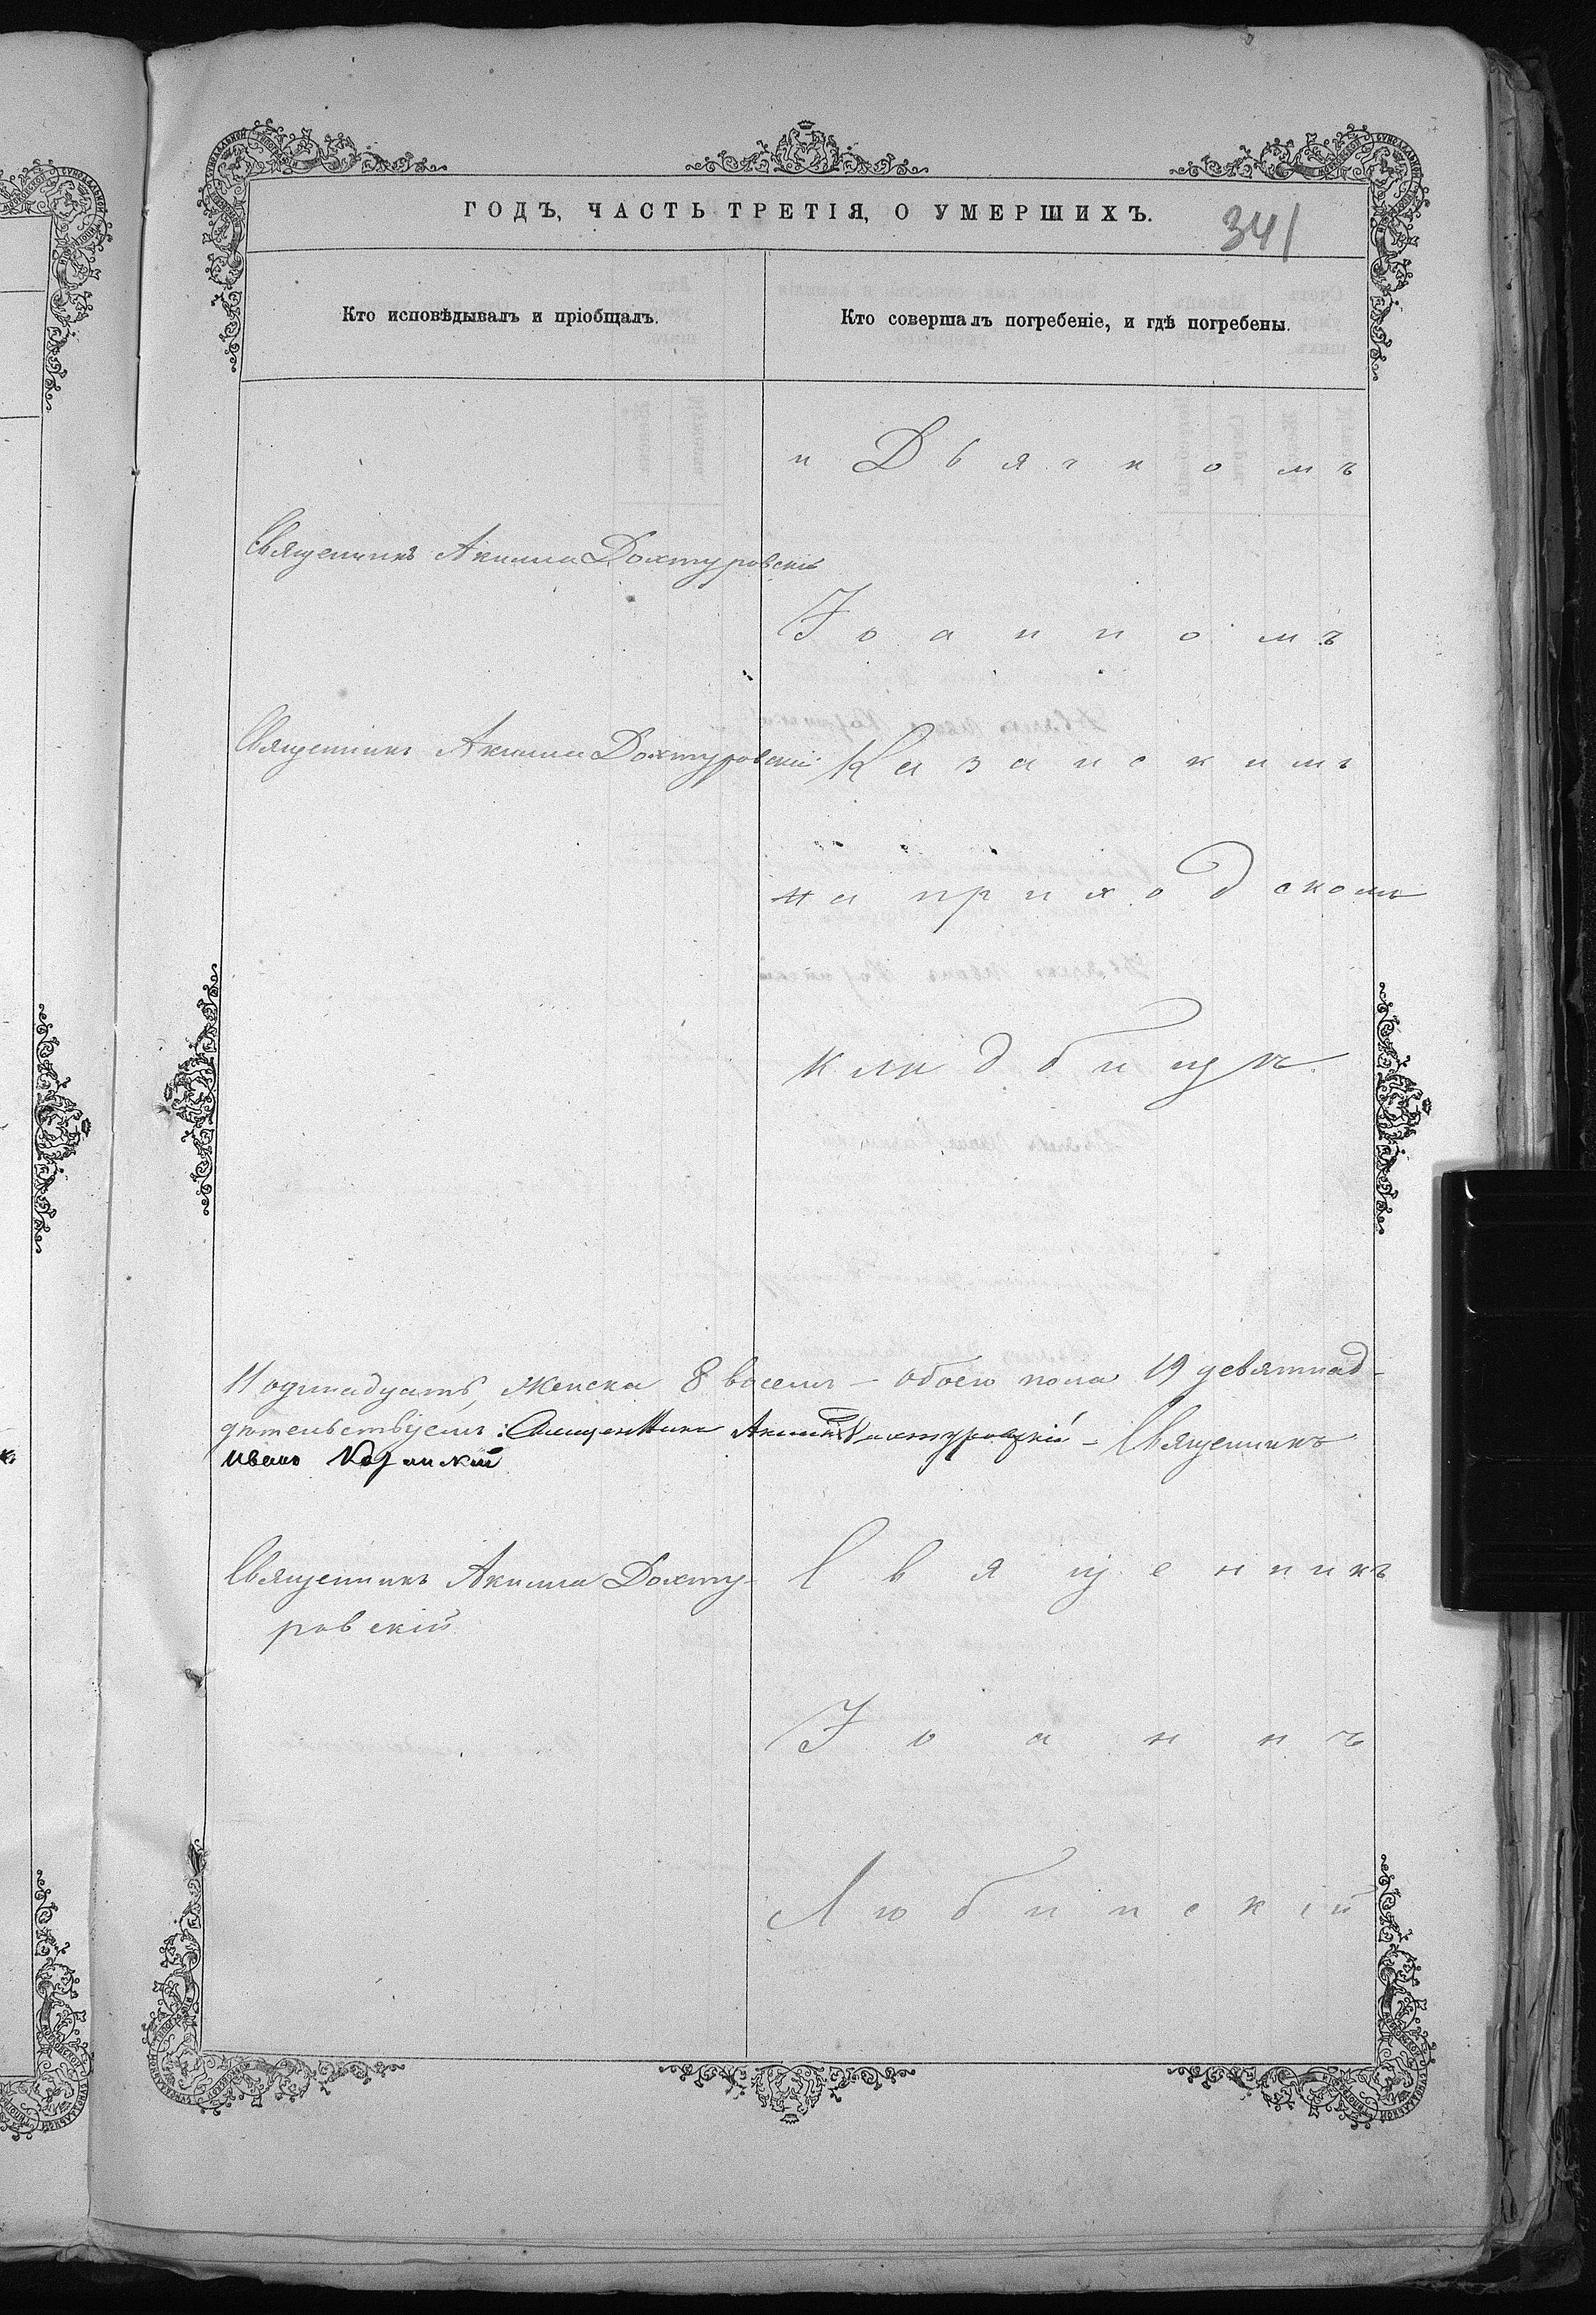 ГОДЪ, ЧАСТЬ ТРЕТІЯ, О УМЕРШИХЪ.
341
Кто исповѣдывалъ и пріобщалъ.
Кто совершалъ погребеніе, и гдѣ погребены.
и Дьячкомъ
Священникъ Акимъ Дохтуровскій
Іоанномъ
Священникъ Акимъ Дохтуровскій
Казанскимъ
на приходскомъ
кладбищѣ
11 одинадцать, Женска 8 восемь – обоего пола 19 девятнад-
дѣтельствуемъ: Священникъ Акимъ Дохтуровскій – Священникъ
Иванъ Казанскій
Священникъ Акимъ Дохту-
ровскій
Священникъ
Іоаннъ
Любинскій